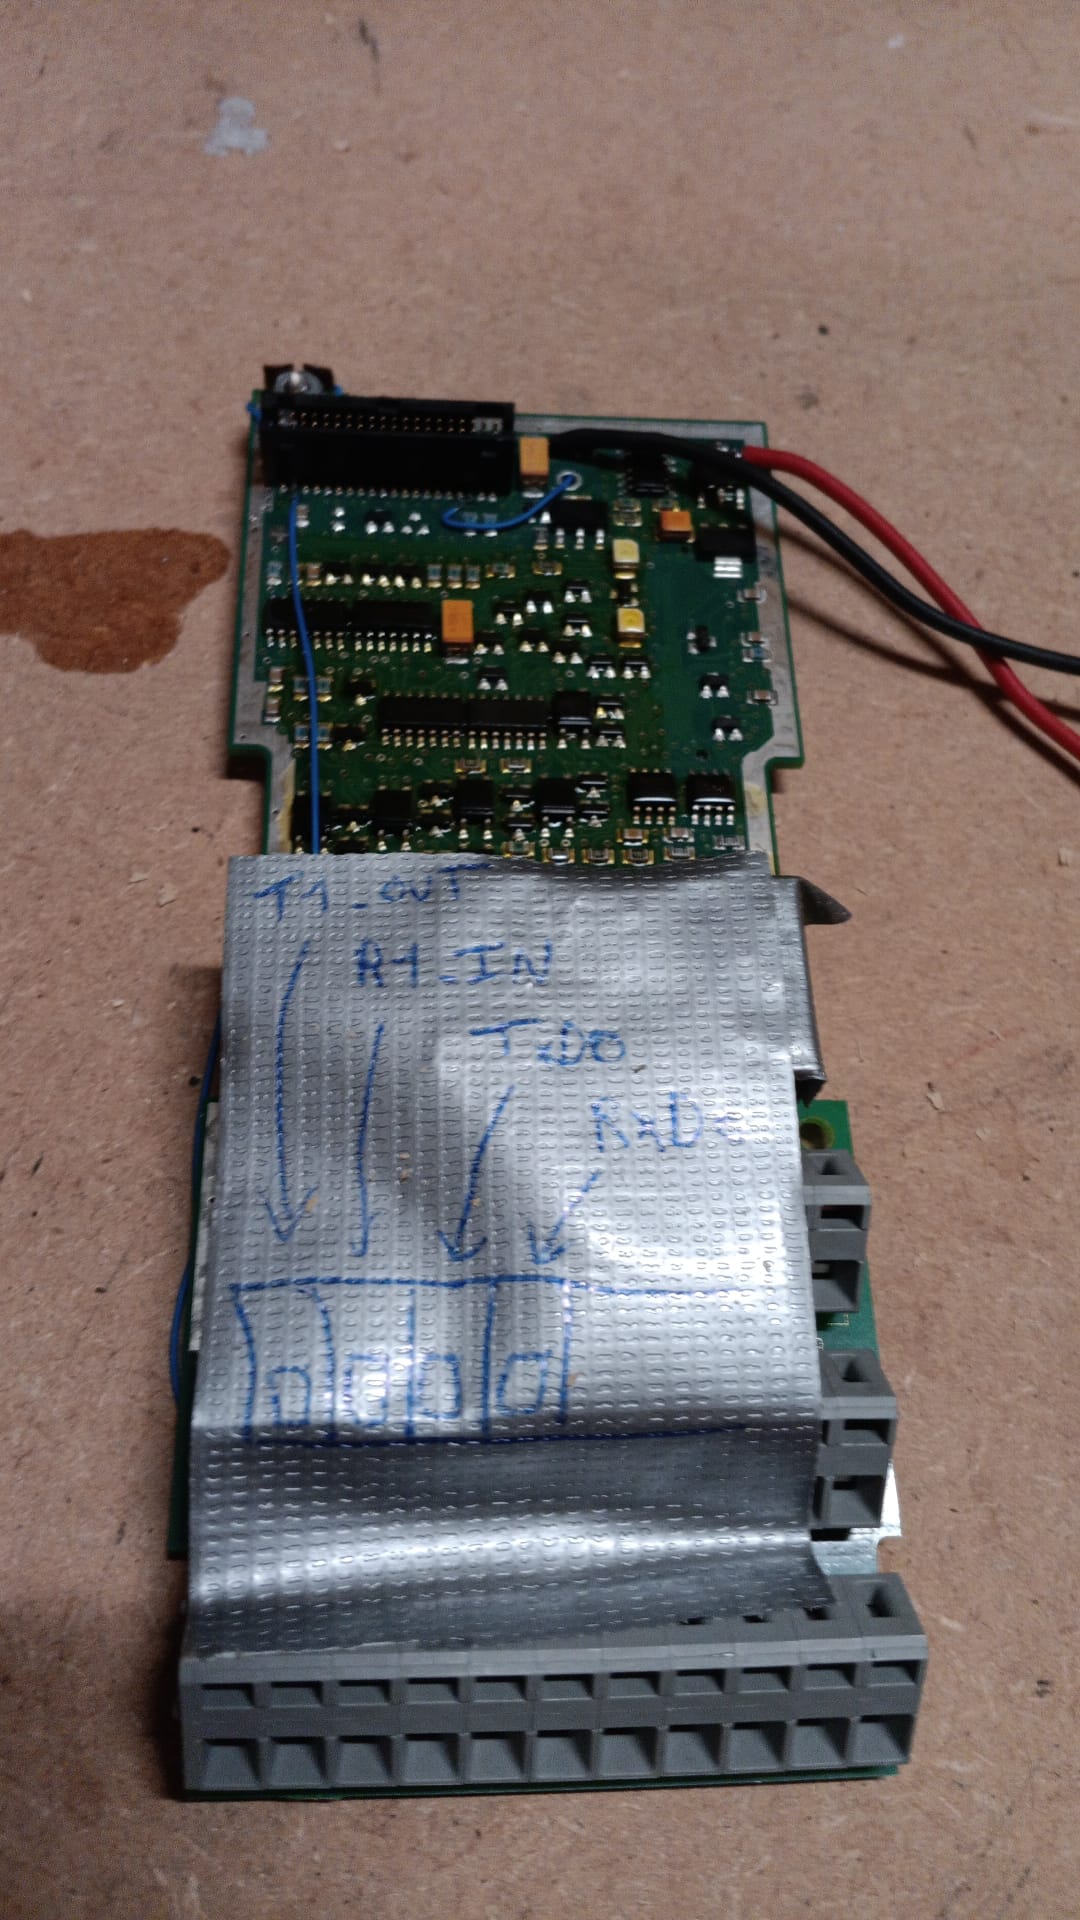 T1_OUT
R1_IN
TxD0